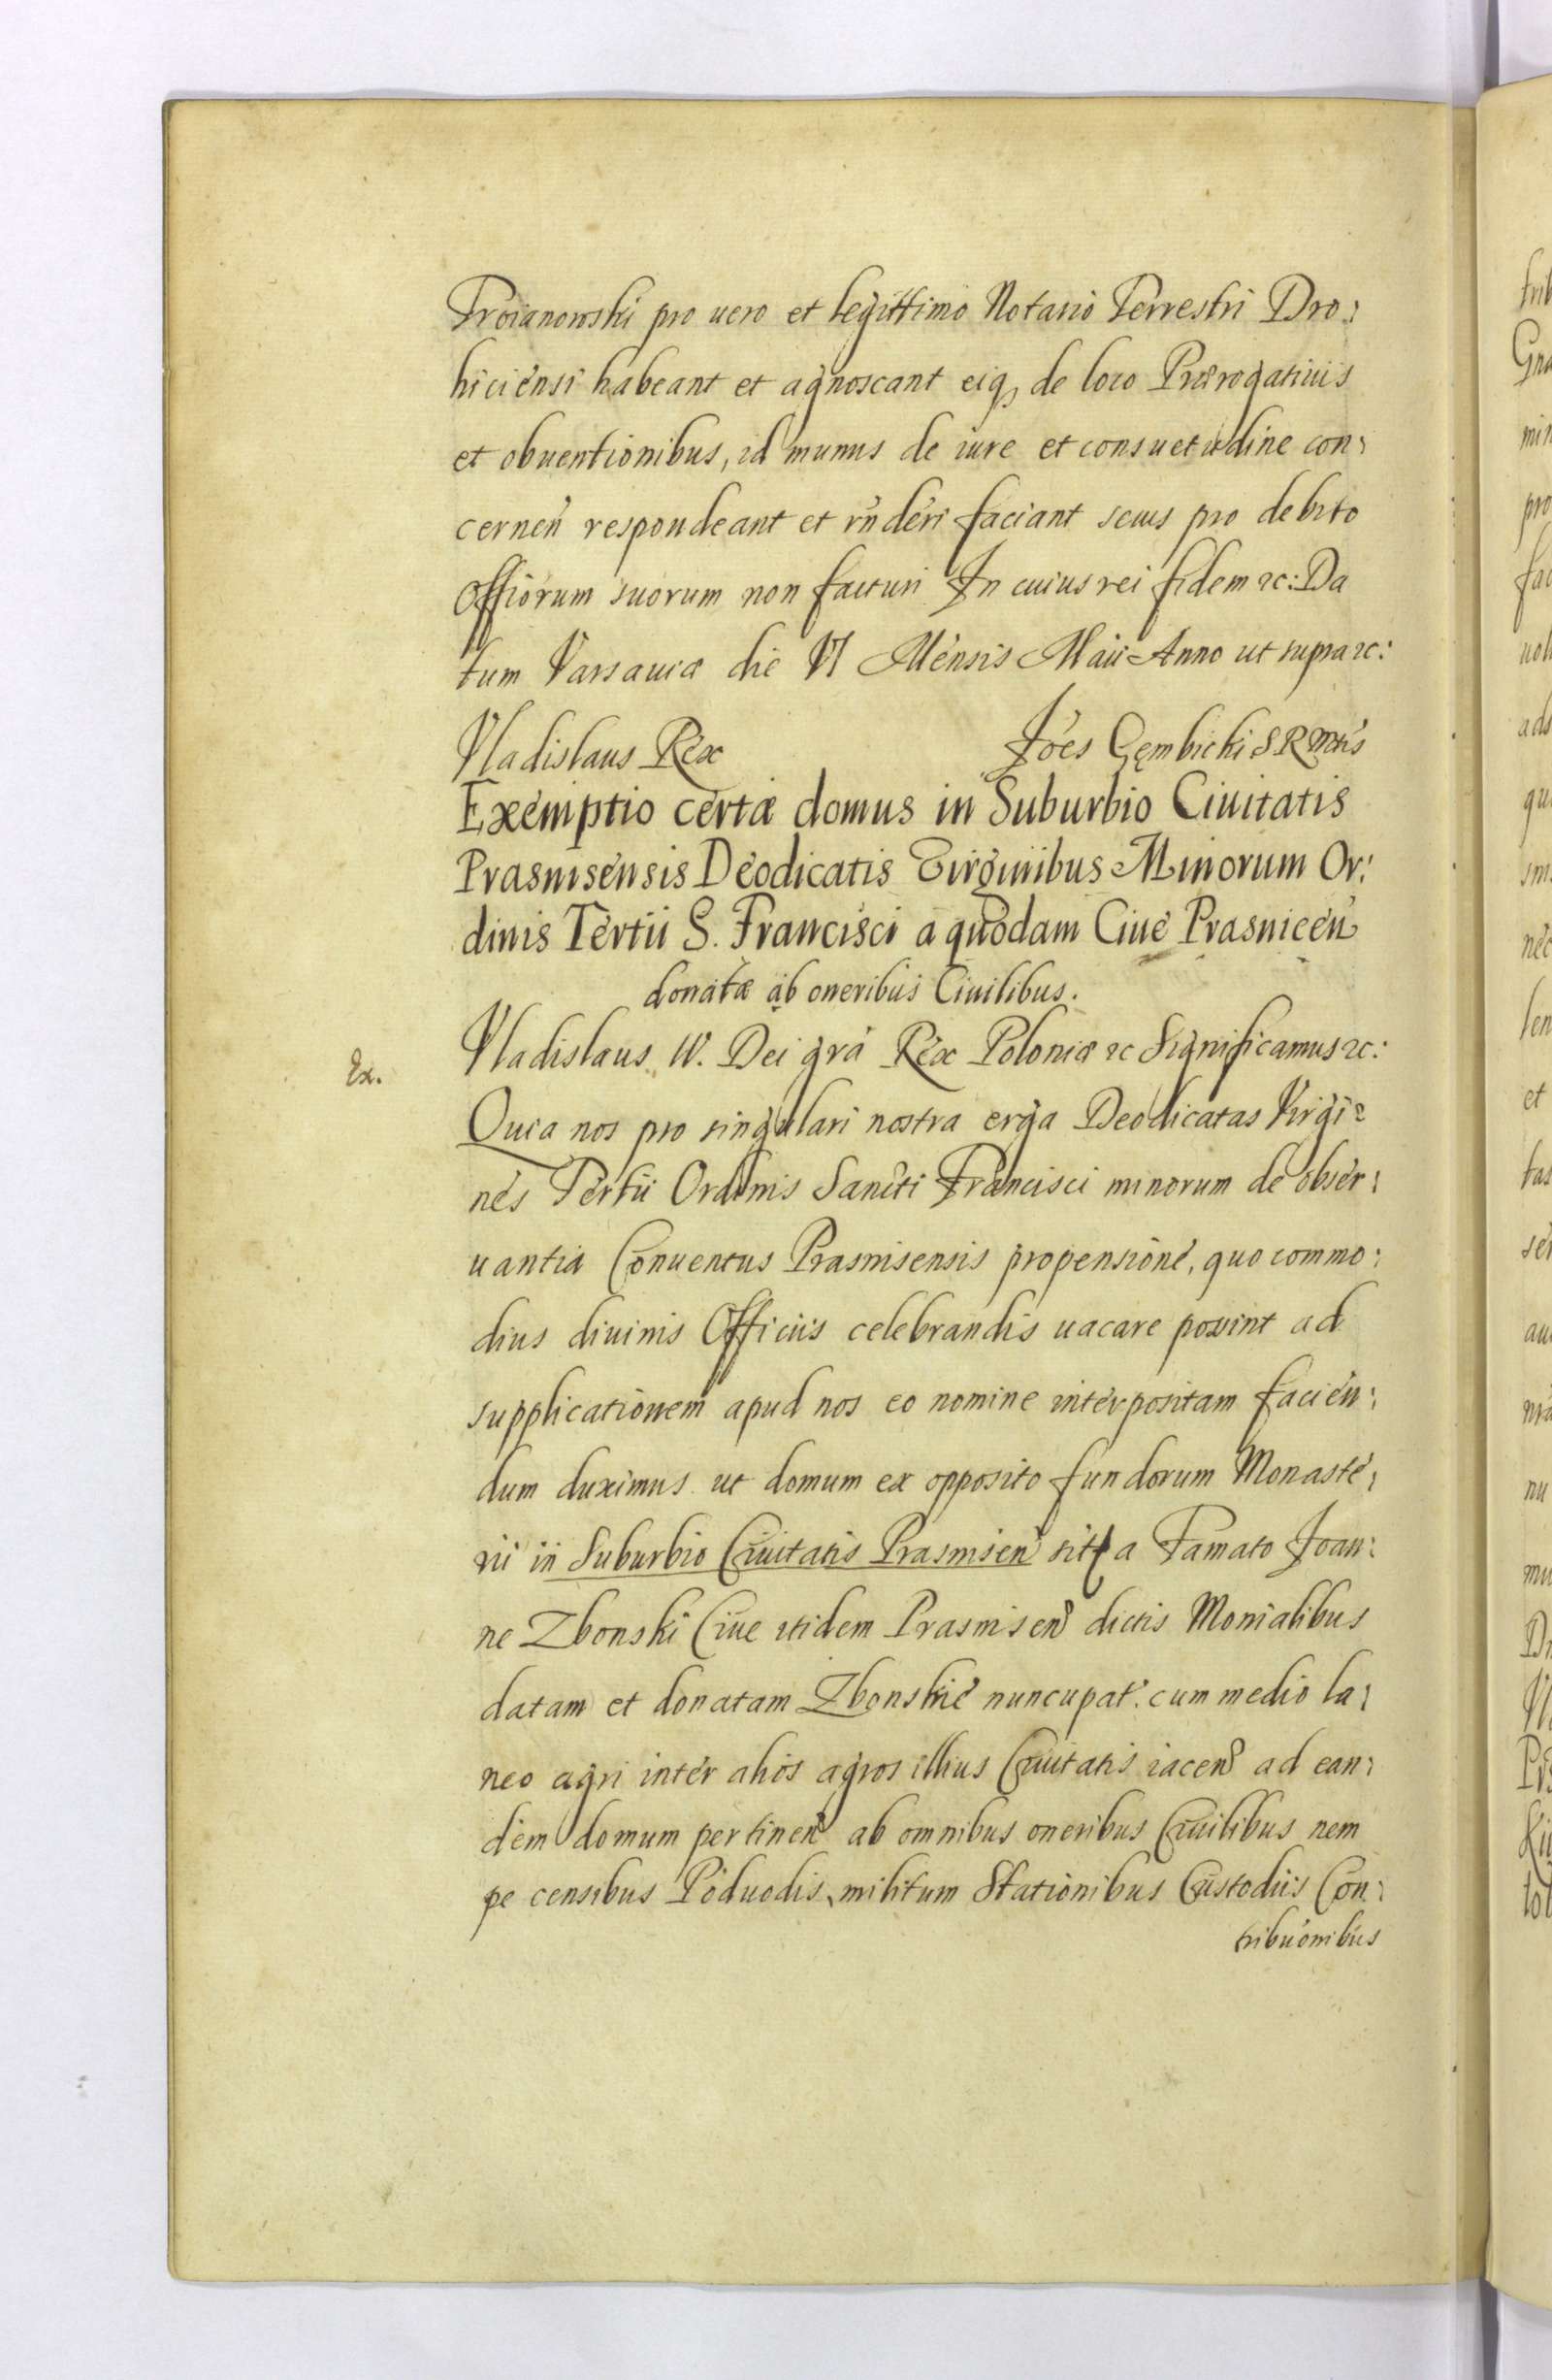 Troianowski pro uero et legittimo Notario Terrestri Dro:
hiciensi habeant et agnoscant eiq, de loco Prærogatiuis
et obuentionibus, id munus de iure et consuetudine con:
cernen respondeant et rn̄deri faciant secus pro debito
Offiorum suorum non facturi In cuius rei fidem ꝛc: Da
tum Varsauiæ die VI Mensis Maii Anno ut supra ꝛc:
Vladislaus Rex Joes Gembicki S R Mtis
Exemptio certæ domus in Suburbio Ciuitatis
Prasnisensis Deodicatis Virginibus Minorum Or:
dinis Tertii S. Francisci a quodam Ciue Prasnicen
donatæ ab oneribus Ciuilibus.
Ex.
Vladislaus IV. Dei grã Rex Poloniæ ꝛc Significamus ꝛc:
Quia nos pro singulari nostra erga Deodicatas Virgi:
nes Tertii Ordinis Sancti Francisci minorum de obser:
uantia Conuentus Prasnisensis propensione, quo commo:
dius diuinis Officiis celebrandis uacare possint ad
supplicationem apud nos eo nomine interpositam facien:
dum duximus ut domum ex opposito fundorum Monaste:
rii in Suburbio Ciuitatis Prasnisen sit a Famato Joan:
ne Zbonski Ciue itidem Prasnisen dictis Monialibus
datam et donatam Zbonskie nuncupat. cum medio la:
neo agri inter alios agros illius Ciuitatis iacen ad ean:
dem domum pertinen ab omnibus oneribus Ciuilibus nem
pe censibus Poduodis, militum Stationibus Custodiis Con:
tribuonibus